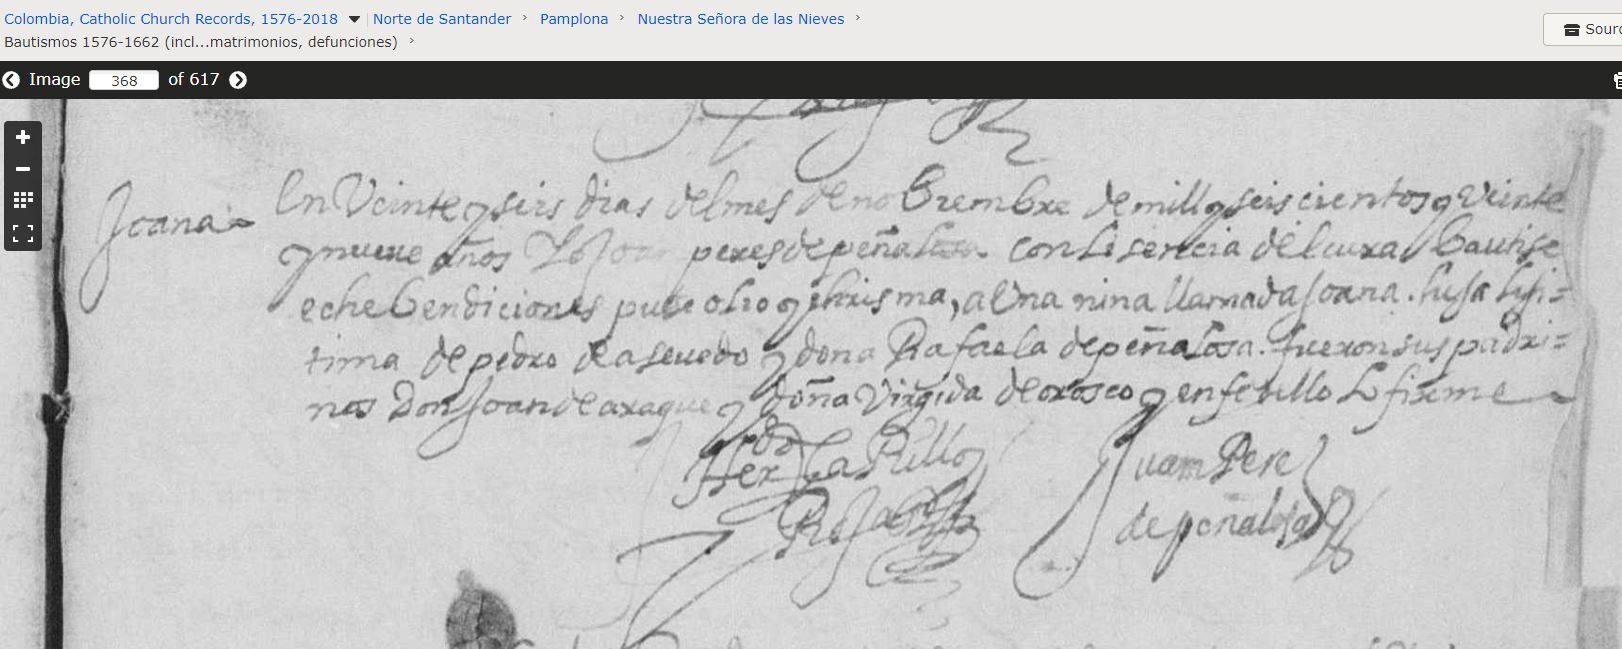 Colombia, Catholic Church Records, 1576-2018 Norte de Santander › Pamplona › Nuestra Señora de las Nieves ›
Bautismos 1576-1662 (incl...matrimonios, defunciones) ›
Sourc
Image 368 of 617
Joana
En Veinte y seis dias del mes de nobiembre de mill y seiscientos y Veinte
y nueve años Yo Joan peres de peñalosa con Lisencia del cura bautise
eche bendiciones puse olio y chrisma, a Una nina llamada Joana. hija liji=
tima de pedro de asevedo y dona Rafaela de peñalosa. fueron sus padri=
nos Don Joan de araque y doña Virgida de orosco y en fe dello Lo firme
Juan Pere
de peñalosa